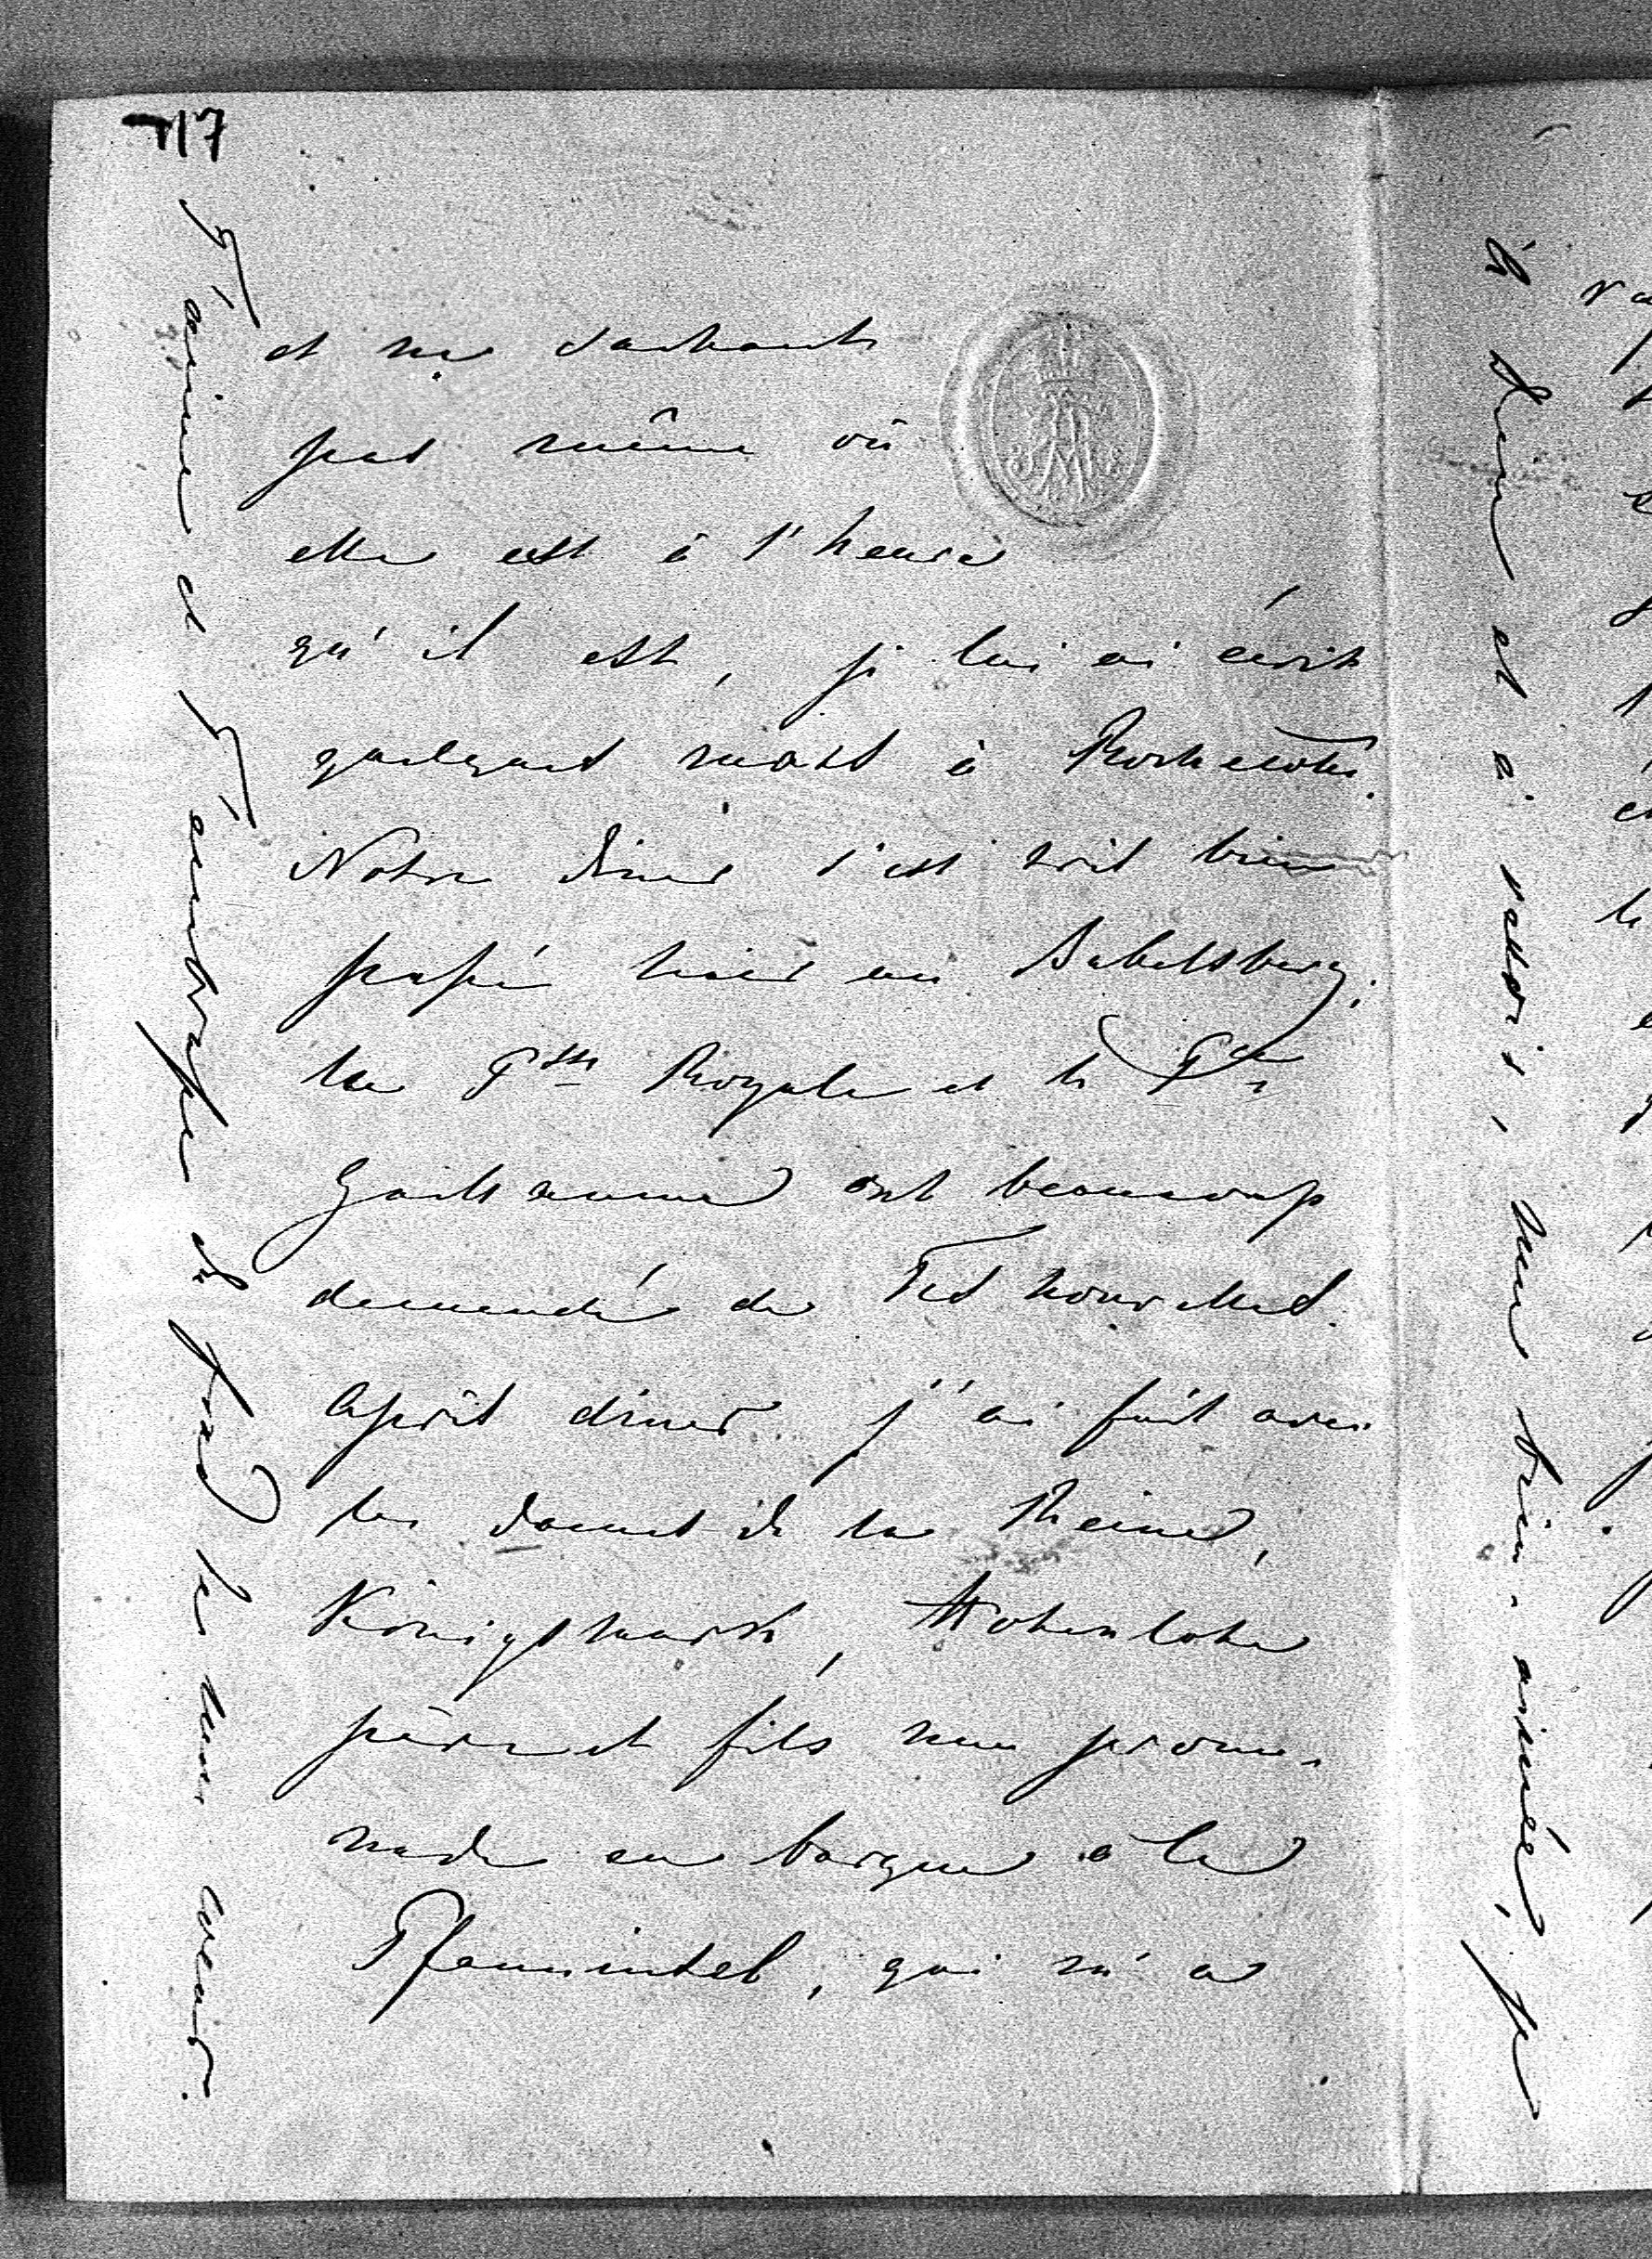 117
et ne sachant
pas même où
elle est à l'heure
qu'il est, je lui ai écrit
quelques mots à Rochecotte.
Notre dîner s'est très bien
passé hier au Babelsberg;
la Pss Royale et le Pce
Guillaume ont beaucoup
demandé de Tes nouvelles.
Après dîner j'ai fait avec
les dames de la Reine,
Königsmark, Hohenlohe
père et fils une prome-
nade en barque à la
Pfaueninsel, qui m'a
T'aime et T'embrasse de tout le mon cœur.
à Lui et à
, mon bien-aimé, je